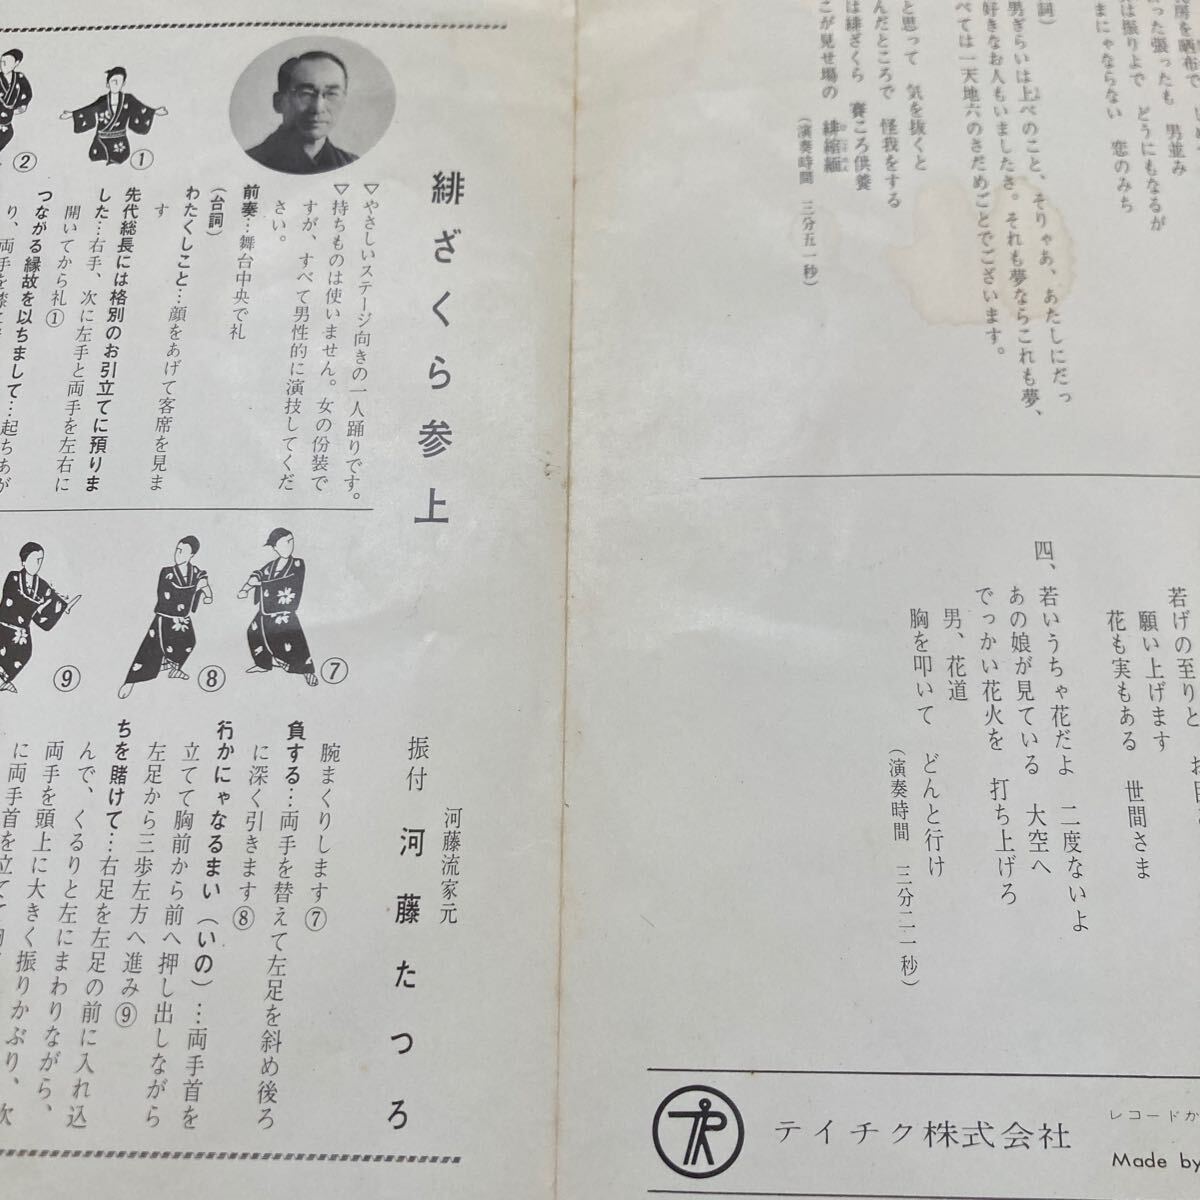 房を晒布で
った張ったも　男並み
は振りよで　どうにもなるが
まにゃならない　恋のみち
詞）
男ぎらいは上べのこと、そりゃあ、あたしにだっ
好きなお人もいましたさ。それも夢ならこれも夢、
べては一天地六のさだめごとでございます。
と思って　気を抜くと
んだところで　怪我をする
は緋ざくら　賽ころ供養
こが見せ場の　緋縮緬
（演奏時間　三分五一秒）
若げの至りと
願い上げます
花も実もある　世間さま
四、若いうちゃ花だよ　二度ないよ
あの娘が見ている　大空へ
でっかい花火を　打ち上げろ
男、花道
胸を叩いて　どんと行け
（演奏時間　三分二一秒）
テイチク株式会社
レコードか
Made by
緋ざくら参上
河藤流家元
振付　河藤たつろ
▽やさしいステージ向きの一人踊りです。
▽持ちものは使いません。女の份装で
すが、すべて男性的に演技してくだ
さい。
前奏…舞台中央で礼
（台詞）
わたくしこと…顔をあげて客席を見ま
す
先代総長には格別のお引立てに預りま
した…右手、次に左手と両手を左右に
開いてから礼①
つながる縁故を以ちまして…起ちあが
り、両手を膝
①
②
⑦
⑧
⑨
腕まくりします⑦
負する…両手を替えて左足を斜め後ろ
に深く引きます⑧
行かにゃなるまい（いの）…両手首を
立てて胸前から前へ押し出しながら
左足から三歩左方へ進み⑨
ちを賭けて…右足を左足の前に入れ込
んで、くるりと左にまわりながら、
両手を頭上に大きく振りかぶり、次
に両手首を立てて